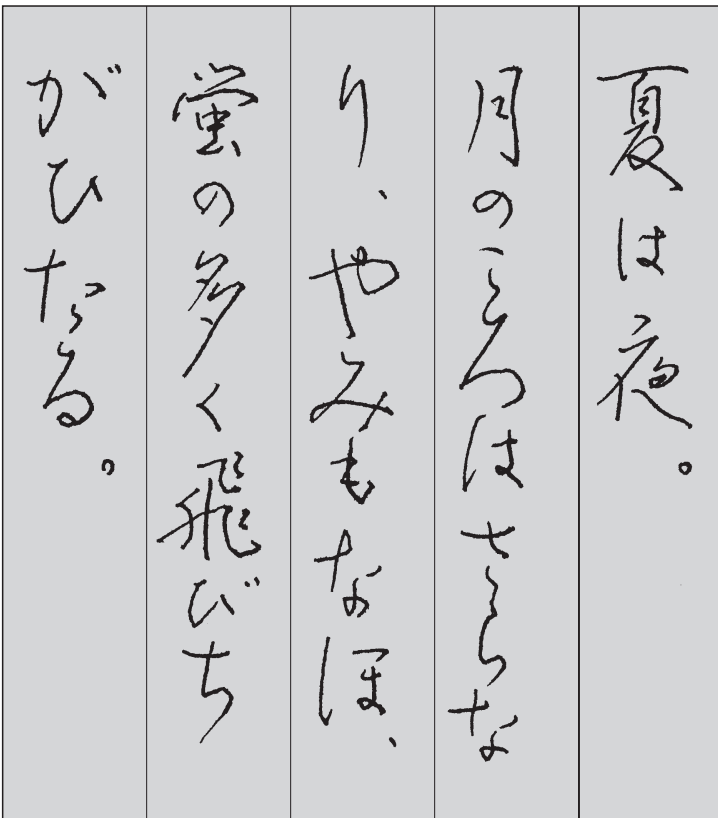 夏は夜。
月のころはさらな
り、やみもなほ、
蛍の多く飛びち
がひたる。